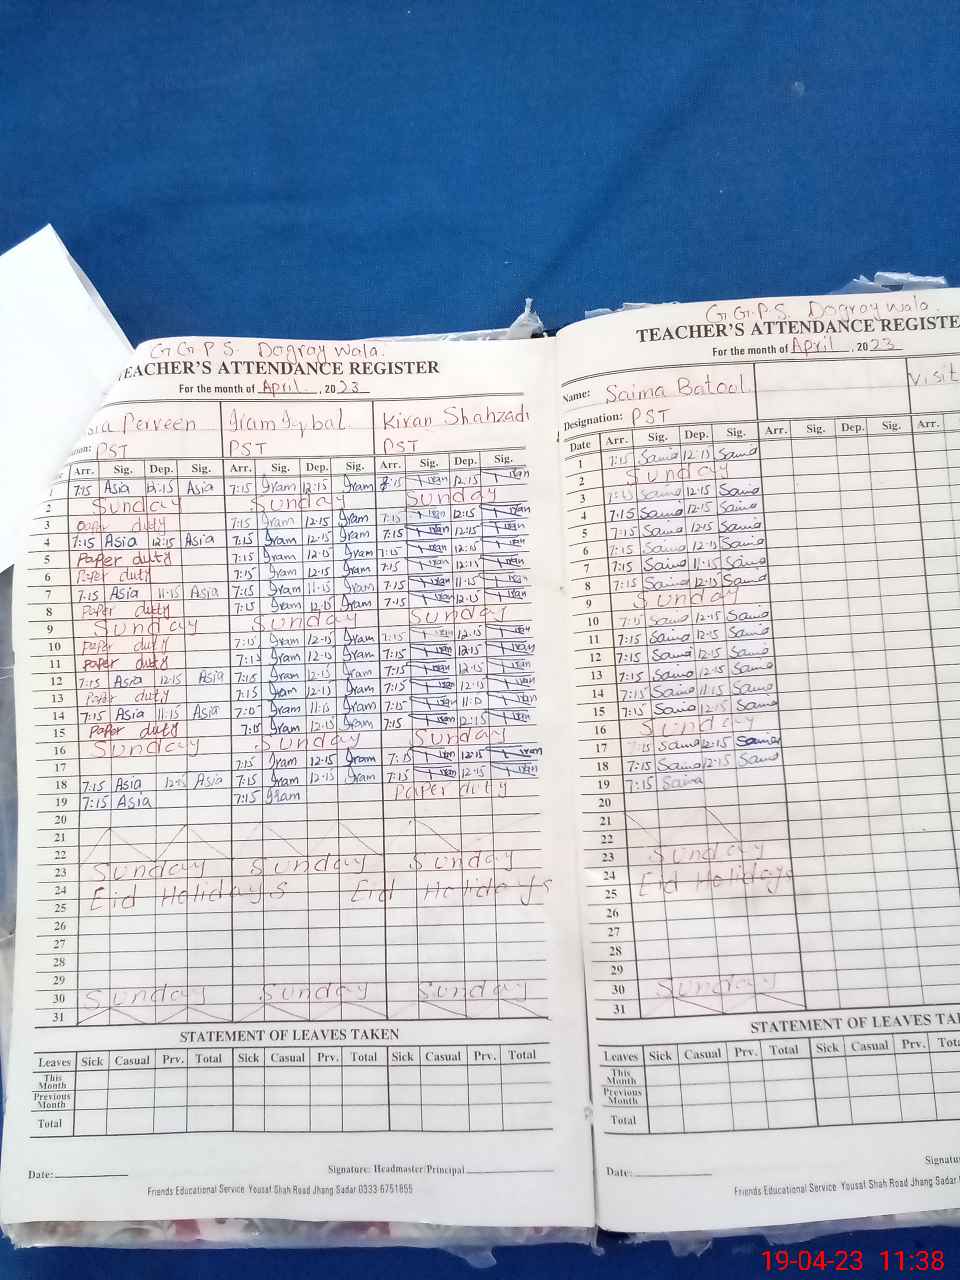 G.G.P.S. Dogray Wala.
TEACHER'S ATTENDANCE REGISTER
For the month of April, 2023
Perveen Iram Iqbal. Kiran Shahzadi
PST PST PST
Arr. Sig. Dep. Sig. Arr. Sig. Dep. Sig. Arr. Sig. Dep. Sig.
1 7:15 Asia 12:15 Asia 7:15 Iram 12:15 Iram 8:15 Kiran 12:15 Kiran
2 Sunday Sunday Sunday
3 Paper duty 7:15 Iram 12:15 Iram 7:15 Kiran 12:15 Kiran
4 7:15 Asia 12:15 Asia 7:15 Iram 12:15 Iram 7:15 Kiran 12:15 Kiran
5 Paper duty 7:15 Iram 12:15 Iram 7:15 Kiran 12:15 Kiran
6 Paper duty 7:15 Iram 12:15 Iram 7:15 Kiran 12:15 Kiran
7 7:15 Asia 11:15 Asia 7:15 Iram 11:15 Iram 7:15 Kiran 11:15 Kiran
8 Paper duty 7:15 Iram 12:15 Iram 7:15 Kiran 12:15 Kiran
9 Sunday Sunday Sunday
10 Paper duty 7:15 Iram 12:15 Iram 7:15 Kiran 12:15 Kiran
11 Paper duty 7:15 Iram 12:15 Iram 7:15 Kiran 12:15 Kiran
12 7:15 Asia 12:15 Asia 7:15 Iram 12:15 Iram 7:15 Kiran 12:15 Kiran
13 Paper duty 7:15 Iram 12:15 Iram 7:15 Kiran 12:15 Kiran
14 7:15 Asia 11:15 Asia 7:15 Iram 11:15 Iram 7:15 Kiran 11:15 Kiran
15 Paper duty 7:15 Iram 12:15 Iram 7:15 Kiran 12:15 Kiran
16 Sunday Sunday Sunday
17 7:15 Iram 12:15 Iram 7:15 Kiran 12:15 Kiran
18 7:15 Asia 12:15 Asia 7:15 Iram 12:15 Iram 7:15 Kiran 12:15 Kiran
19 7:15 Asia 7:15 Iram Paper duty
20
21
22
23 Sunday Sunday Sunday
24 Eid Holidays Eid Holidays
25
26
27
28
29
30 Sunday Sunday Sunday
31
STATEMENT OF LEAVES TAKEN
Leaves Sick Casual Prv. Total Sick Casual Prv. Total Sick Casual Prv. Total
This Month
Previous Month
Total
Date: Signature: Headmaster/Principal
Friends Educational Service Yousaf Shah Road Jhang Sadar 0333 6751855
G.G.P.S. Dogray Wala.
TEACHER'S ATTENDANCE
For the month of April, 2023
Name: Saima Batool. Visit
Designation: PST
Date Arr. Sig. Dep. Sig. Arr. Sig. Dep. Sig. Arr.
1 7:15 Saima 12:15 Saima
2 Sunday
3 7:15 Saima 12:15 Saima
4 7:15 Saima 12:15 Saima
5 7:15 Saima 12:15 Saima
6 7:15 Saima 12:15 Saima
7 7:15 Saima 11:15 Saima
8 7:15 Saima 12:15 Saima
9 Sunday
10 7:15 Saima 12:15 Saima
11 7:15 Saima 12:15 Saima
12 7:15 Saima 12:15 Saima
13 7:15 Saima 12:15 Saima
14 7:15 Saima 11:15 Saima
15 7:15 Saima 12:15 Saima
16 Sunday
17 7:15 Saima 12:15 Saima
18 7:15 Saima 12:15 Saima
19 7:15 Saima
20
21
22
23 Sunday
24 Eid Holidays
25
26
27
28
29
30 Sunday
31
STATEMENT OF LEAVES
Leaves Sick Casual Prv. Total Sick Casual Prv.
This Month
Previous Month
Total
Date:
Friends Educational Service Yousaf Shah Road Jhang Sadar
19-04-23 11:38